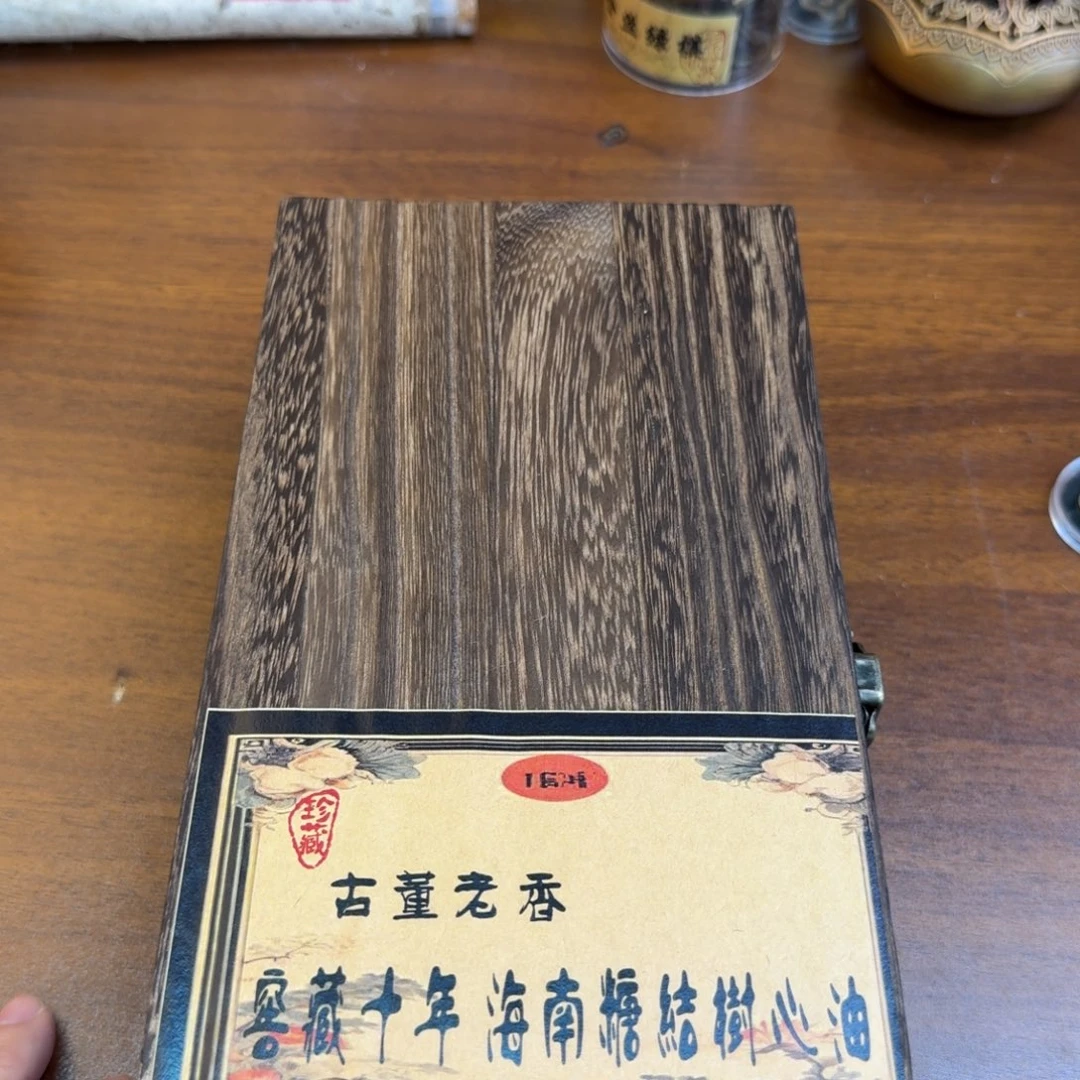 珍藏
古董老香
窖藏十年 海南糖結樹心油